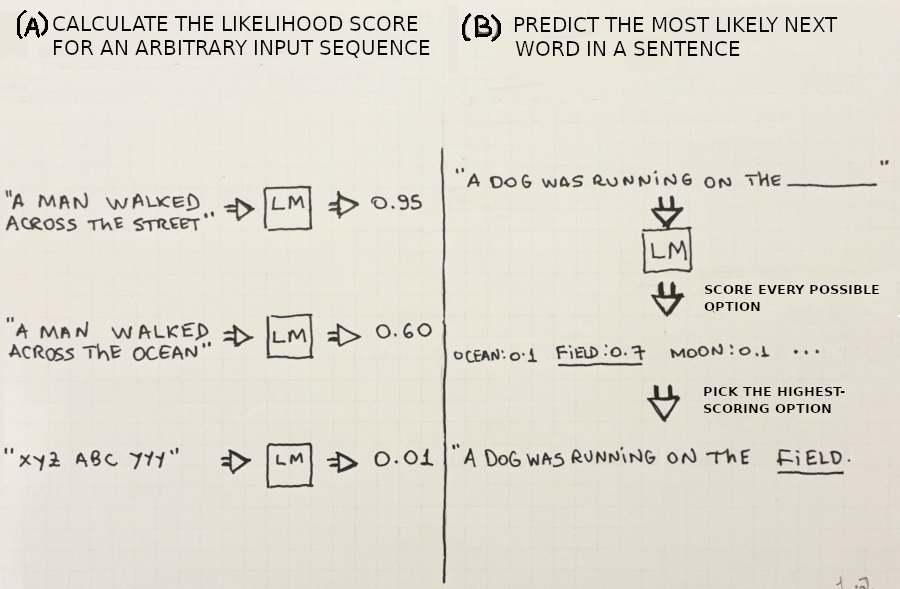 (A) CALCULATE THE LIKELIHOOD SCORE
FOR AN ARBITRARY INPUT SEQUENCE
"A MAN WALKED
ACROSS THE STREET"
LM
0.95
"A MAN WALKED
ACROSS THE OCEAN"
LM
0.60
"XYZ ABC YYY"
LM
0.01
(B) PREDICT THE MOST LIKELY NEXT
WORD IN A SENTENCE
"A DOG WAS RUNNING ON THE ________"
LM
SCORE EVERY POSSIBLE
OPTION
OCEAN:0.1 FIELD:0.7 MOON:0.1 ...
PICK THE HIGHEST-
SCORING OPTION
"A DOG WAS RUNNING ON THE FIELD.